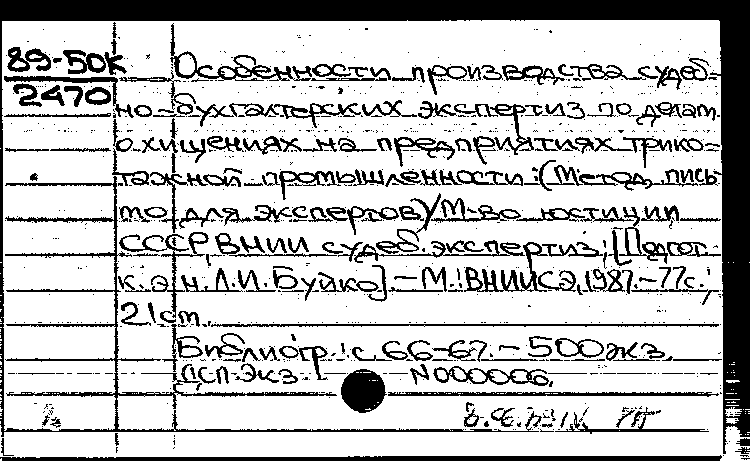 89-50К
2470
Особенности производства судеб=
но-бухгалтерских экспертиз по делам
о хищениях на предприятиях трико=
тажной промышленности:(Метод. пись
мо для экспертов)/М-во юстиции
СССР, ВНИИ судеб. экспертиз; [Подгот.
к.э.н. Л.И. Буйко].-М.:ВНИИСЭ, 1987.-77с.;
21 cm.
Библиогр.: с. 66-67. - 500 экз.
ДСП. Экз. N000006.